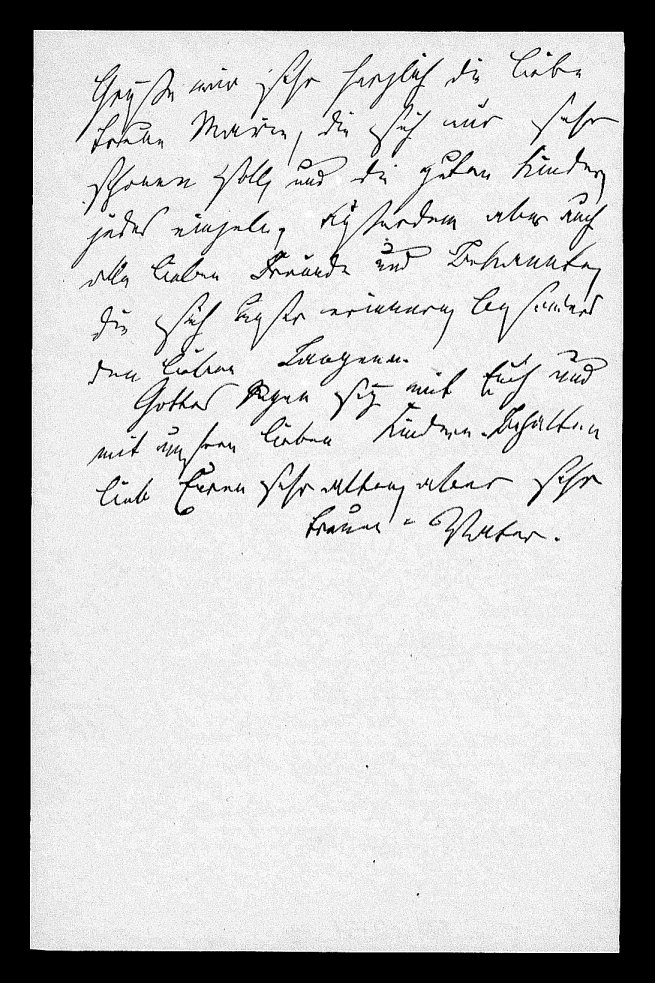 Grüße mir sehr herzlich die liebe
treue Marie, die sich nur sehr
schonen soll, und die guten Kinder,
jedes einzeln, Außerdem aber auch
alle lieben Freunde und Bekannten,
die sich erinnern, besonders
den lieben
Gottes Segen sey mit Euch und
mit unseren lieben Kindern. Behalten
lieb Euren sehr alten, aber sehr
treuen Vater.